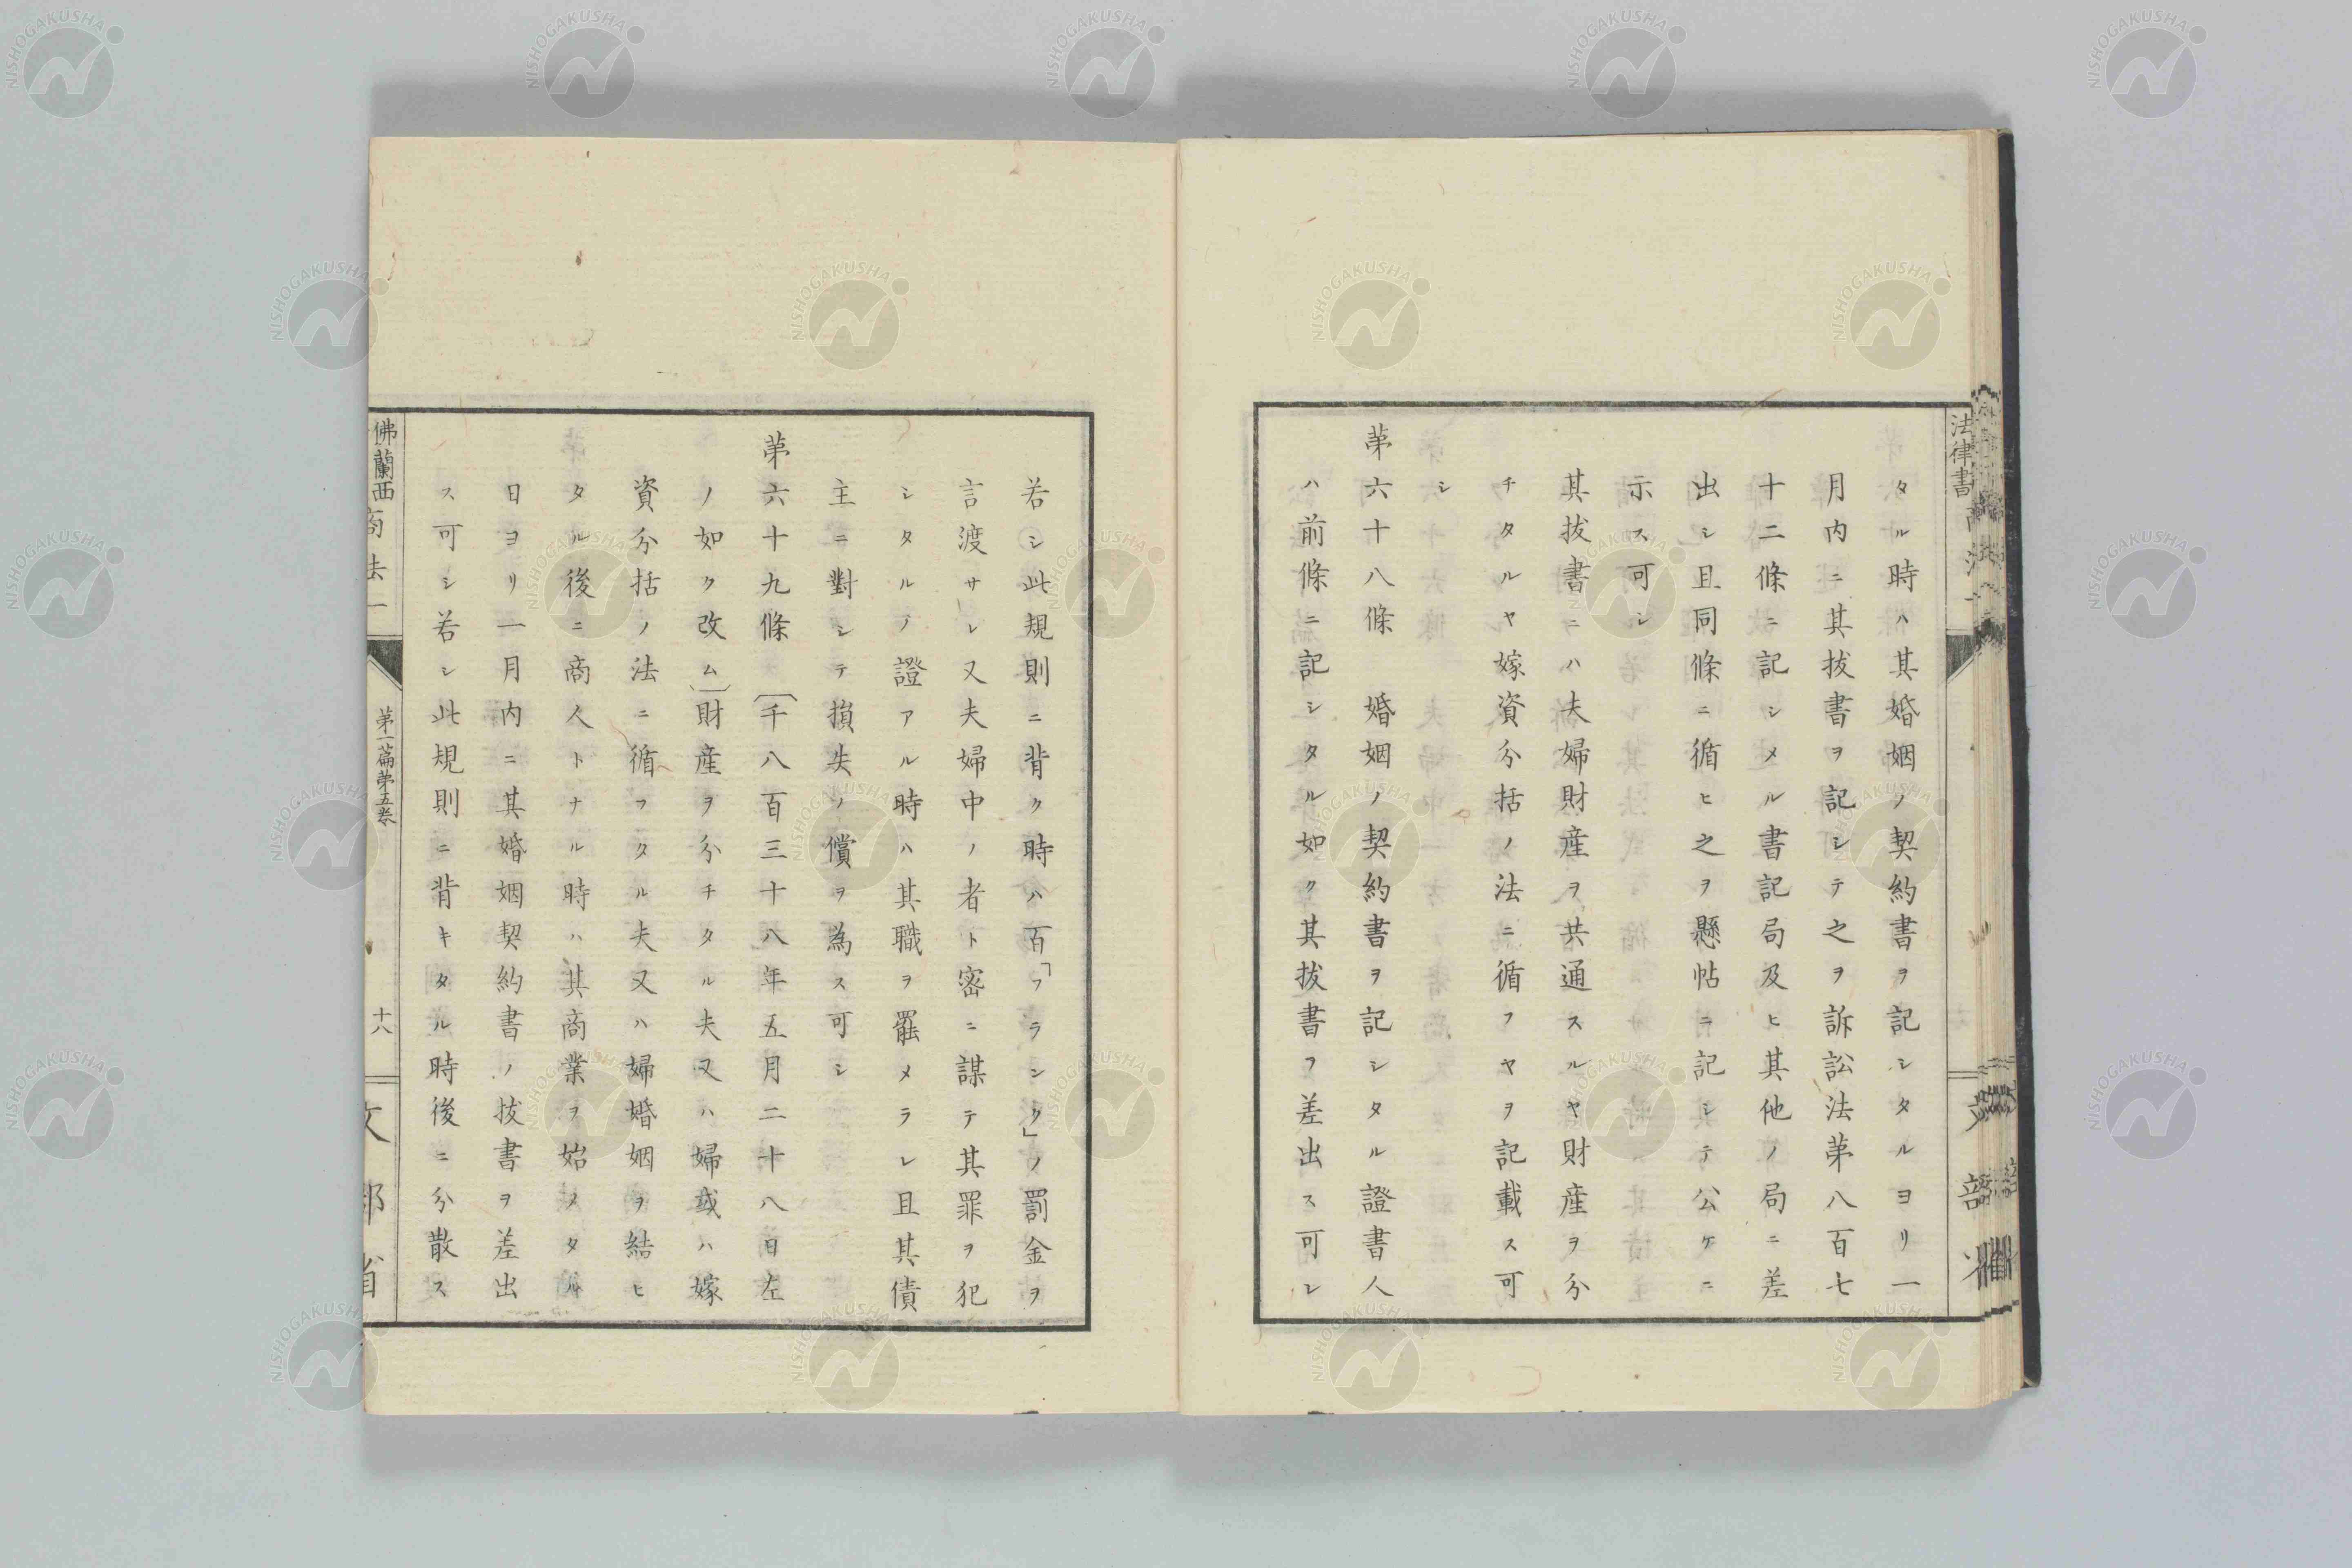 法律書
タル時ハ其婚姻ノ契約書ヲ記シタルヨリ一
月内ニ其拔書ヲ記シテ之ヲ訴訟法苐八百七
十二條ニ記シメル書記局及ヒ其他ノ局ニ差
出シ且同條ニ循ヒ之ヲ懸帖ニ記シテ公ケニ
示ス可シ
其拔書ニハ夫婦財産ヲ共通スルヤ財産ヲ分
チタルヤ嫁資分括ノ法ニ循フヤヲ記載ス可
シ
苐六十八條 婚姻ノ契約書ヲ記シタル證書人
ハ前條ニ記シタル如ク其拔書ヲ差出ス可シ
若シ此規則ニ背ク時ハ百「フランク」ノ罰金ヲ
言渡サレ又夫婦中ノ者ト密ニ謀テ其罪ヲ犯
シタルノ證アル時ハ其職ヲ罷メラレ且其債
主ニ對シテ損失ノ償ヲ為ス可シ
苐六十九條 〔千八百三十八年五月二十八日左
ノ如ク改ム〕財産ヲ分チタル夫又ハ婦或ハ嫁
資分括ノ法ニ循フタル夫又ハ婦婚姻ヲ結ヒ
タル後ニ商人トナル時ハ其商業ヲ始メタル
日ヨリ一月内ニ其婚姻契約書ノ拔書ヲ差出
ス可シ若シ此規則ニ背キタル時後ニ分散ス
佛蘭西商法一
苐一篇苐五卷
十八
文部省
NISHOGAKUSHA